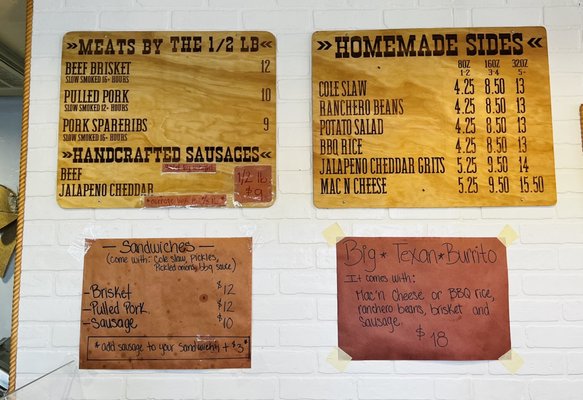 »MEATS BY THE 1/2 LB«
BEEF BRISKET 12
SLOW SMOKED 16+ HOURS
PULLED PORK 10
SLOW SMOKED 12+ HOURS
PORK SPARERIBS 9
SLOW SMOKED 16+ HOURS
»HANDCRAFTED SAUSAGES«
BEEF
JALAPENO CHEDDAR
1/2 lb
$9
»HOMEMADE SIDES«
8OZ 16OZ 32OZ
1-2 3-4 5+
COLE SLAW 4.25 8.50 13
RANCHERO BEANS 4.25 8.50 13
POTATO SALAD 4.25 8.50 13
BBQ RICE 4.25 8.50 13
JALAPENO CHEDDAR GRITS 5.25 9.50 14
MAC N CHEESE 5.25 9.50 15.50
— Sandwiches —
(come with: Cole slaw, Pickles,
Pickled onions, bbq sauce)
-Brisket $12
-Pulled Pork $12
-Sausage $10
*add sausage to your sandwich + $3*
Big * Texan * Burrito
It comes with:
Mac'n Cheese or BBQ rice,
ranchero beans, brisket and
Sausage.
$18